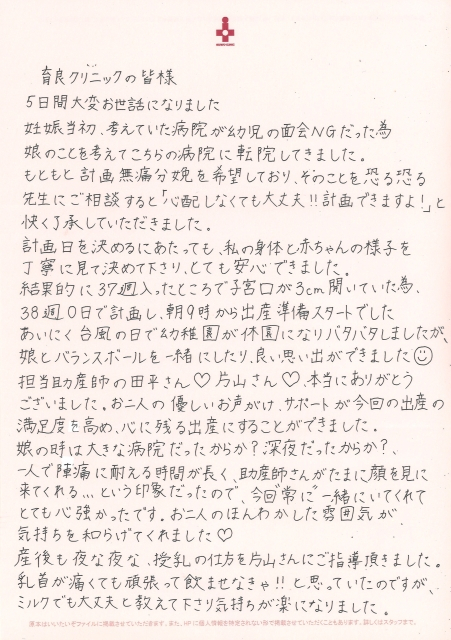 育良クリニックの皆様
5日間大変お世話になりました
妊娠当初、考えていた病院が幼児の面会NGだった為
娘のことを考えてこちらの病院に転院してきました。
もともと計画無痛分娩を希望しており、そのことを恐る恐る
先生にご相談すると「心配しなくても大丈夫!!計画できますよ!」と
快く了承していただきました。
計画日を決めるにあたっても、私の身体と赤ちゃんの様子を
丁寧に見て決めて下さり、とても安心できました。
結果的に37週入ったところで子宮口が3cm開いていた為、
38週0日で計画し、朝9時から出産準備スタートでした
あいにく台風の日で幼稚園が休園になりバタバタしましたが、
娘とバランスボールを一緒にしたり、良い思い出ができました☺
担当助産師の田平さん♡片山さん♡、本当にありがとう
ございました。お二人の優しいお声がけ、サポートが今回の出産の
満足度を高め、心に残る出産にすることができました。
娘の時は大きな病院だったからか?深夜だったからか?、
一人で陣痛に耐える時間が長く、助産師さんがたまに顔を見に
来てくれる...という印象だったので、今回常に一緒にいてくれて
とても心強かったです。お二人のほんわかした雰囲気が
気持ちを和らげてくれました♡
産後も夜な夜な、授乳の仕方を片山さんにご指導頂きました。
乳首が痛くても頑張って飲ませなきゃ!!と思っていたのですが、
ミルクでも大丈夫と教えて下さり気持ちが楽になりました。
原本はいいたいぞファイルに掲載させていただきます。また、HPに個人情報を特定されない形で掲載させていただくこともあります。詳しくはスタッフまで。